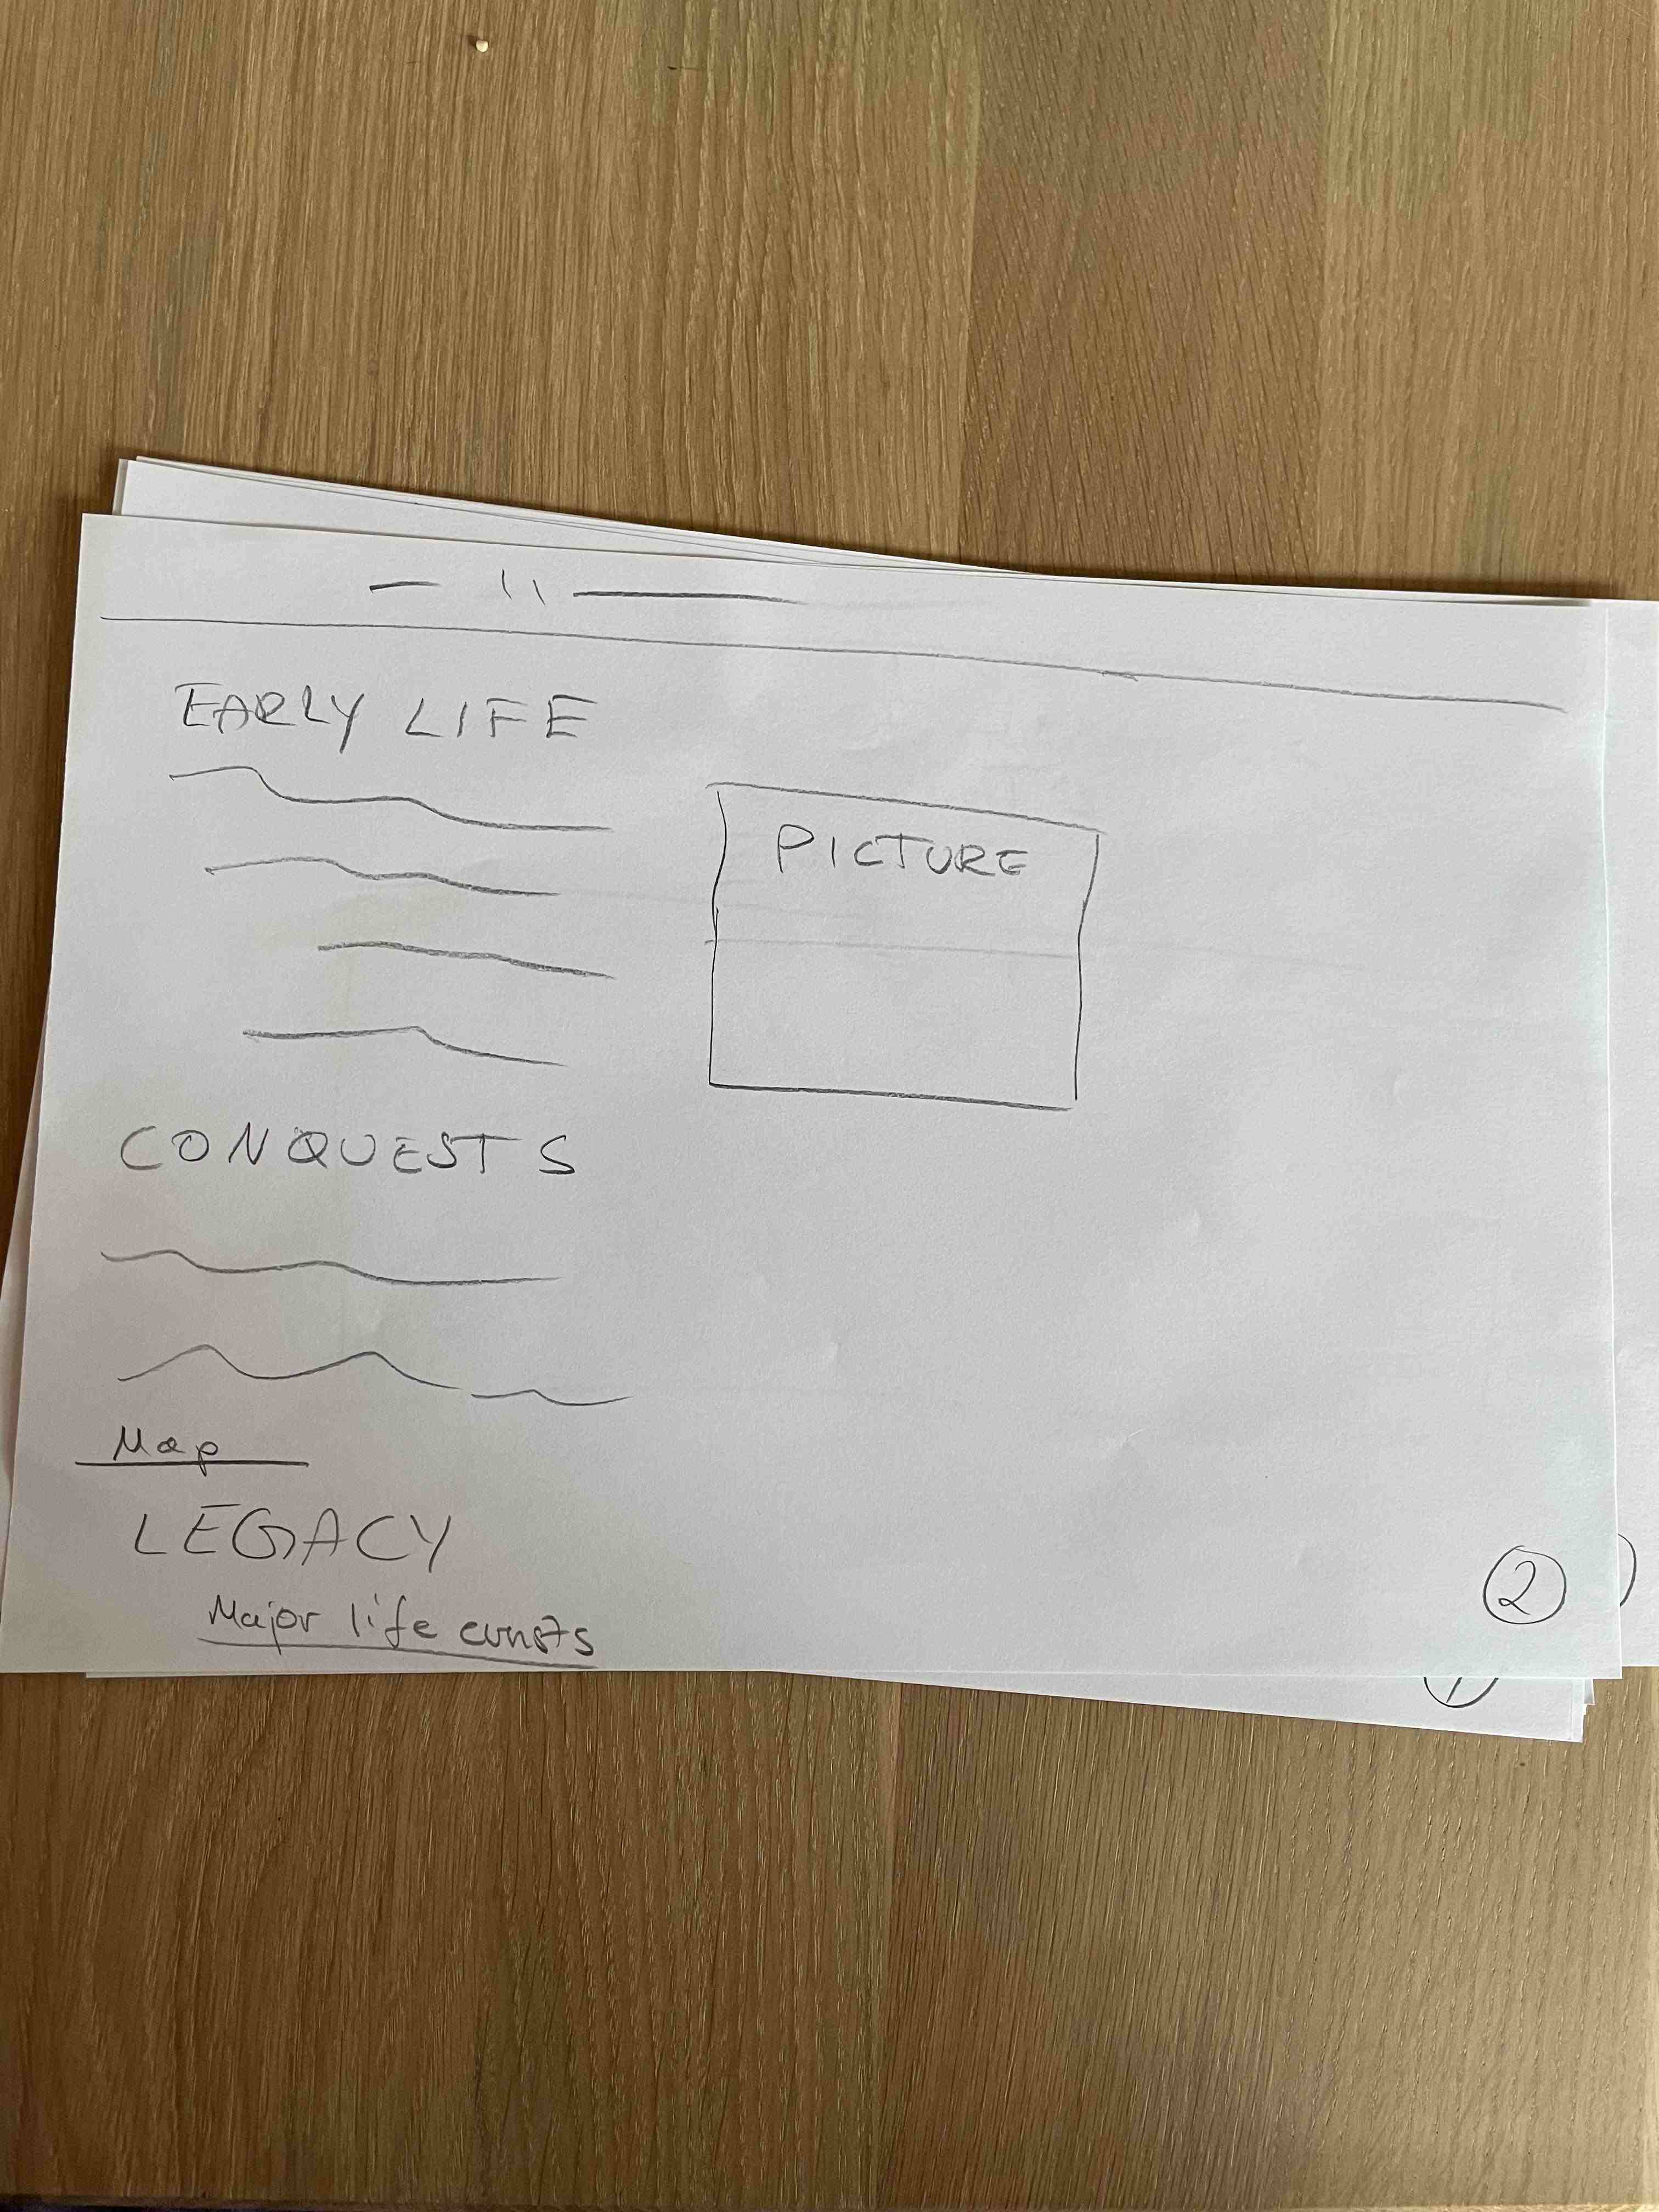 — \\ ———
EARLY LIFE
PICTURE
CONQUESTS
Map
LEGACY
Major life events
2